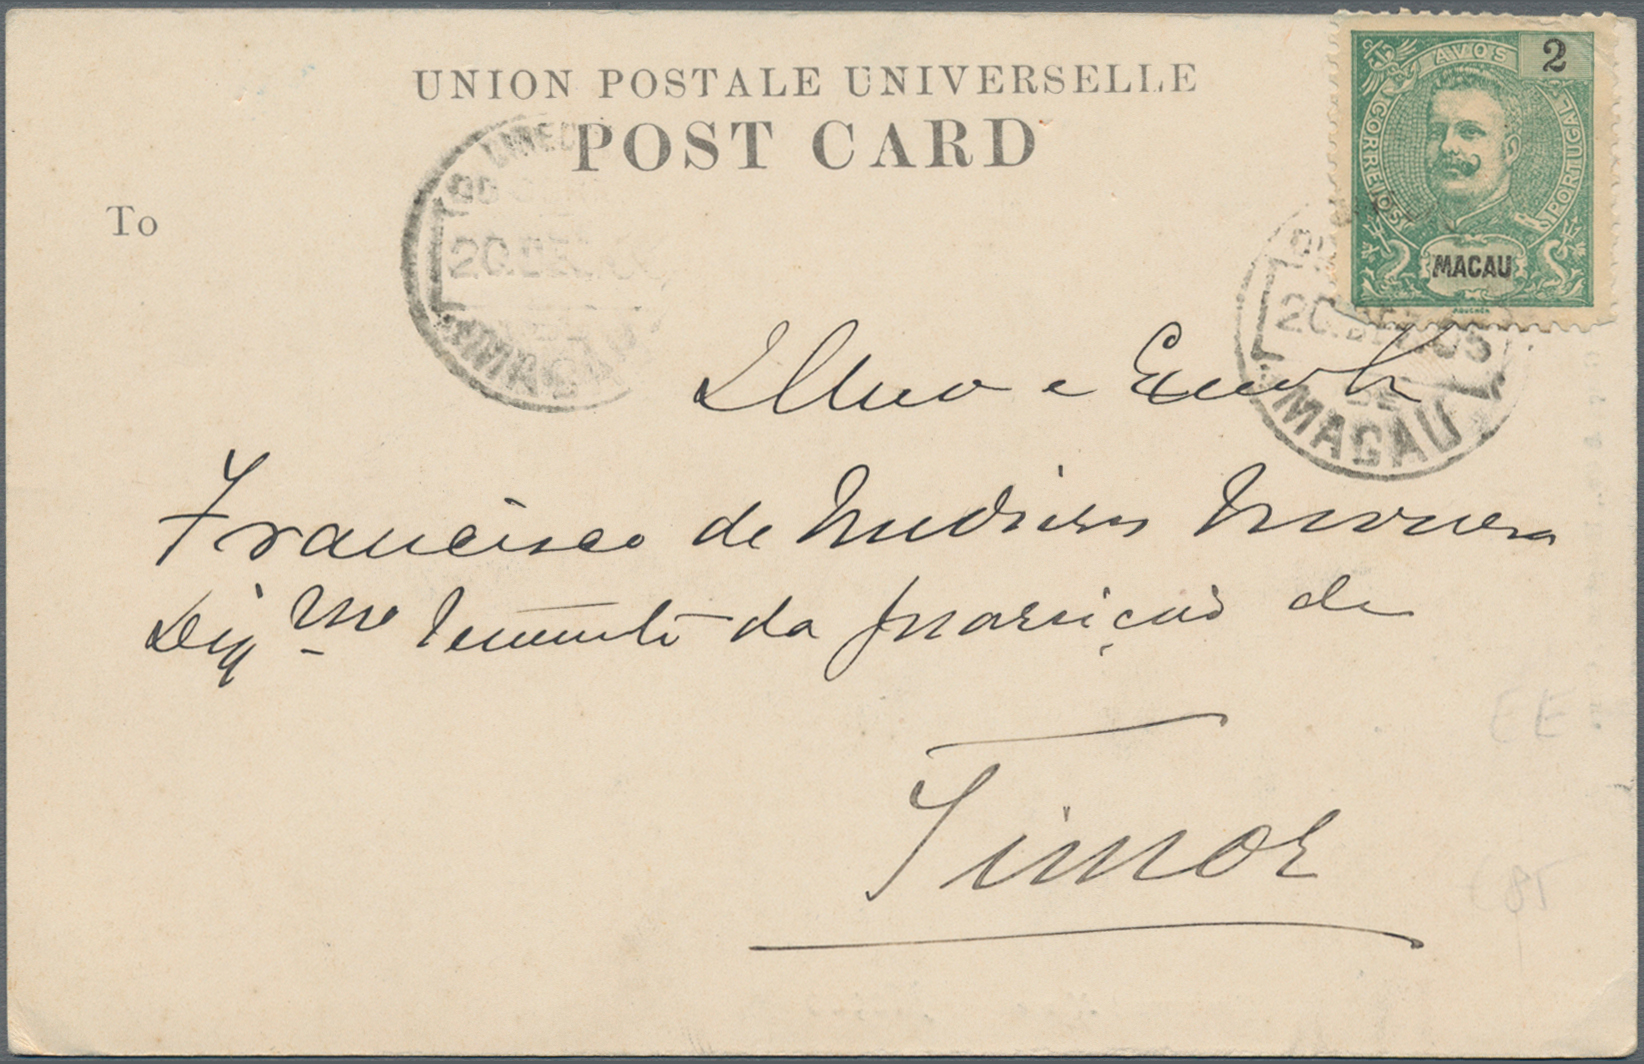 UNION POSTALE UNIVERSELLE
POST CARD
To
AVOS 2
CORREIOS
PORTUGAL
MACAU
20.DEZ.05
MACAU
20.DEZ.
MACAU
Illmo e Exmo Sr
Francisco de Medeiros
Digmo Tenente da Guarnição de
Timor
EE